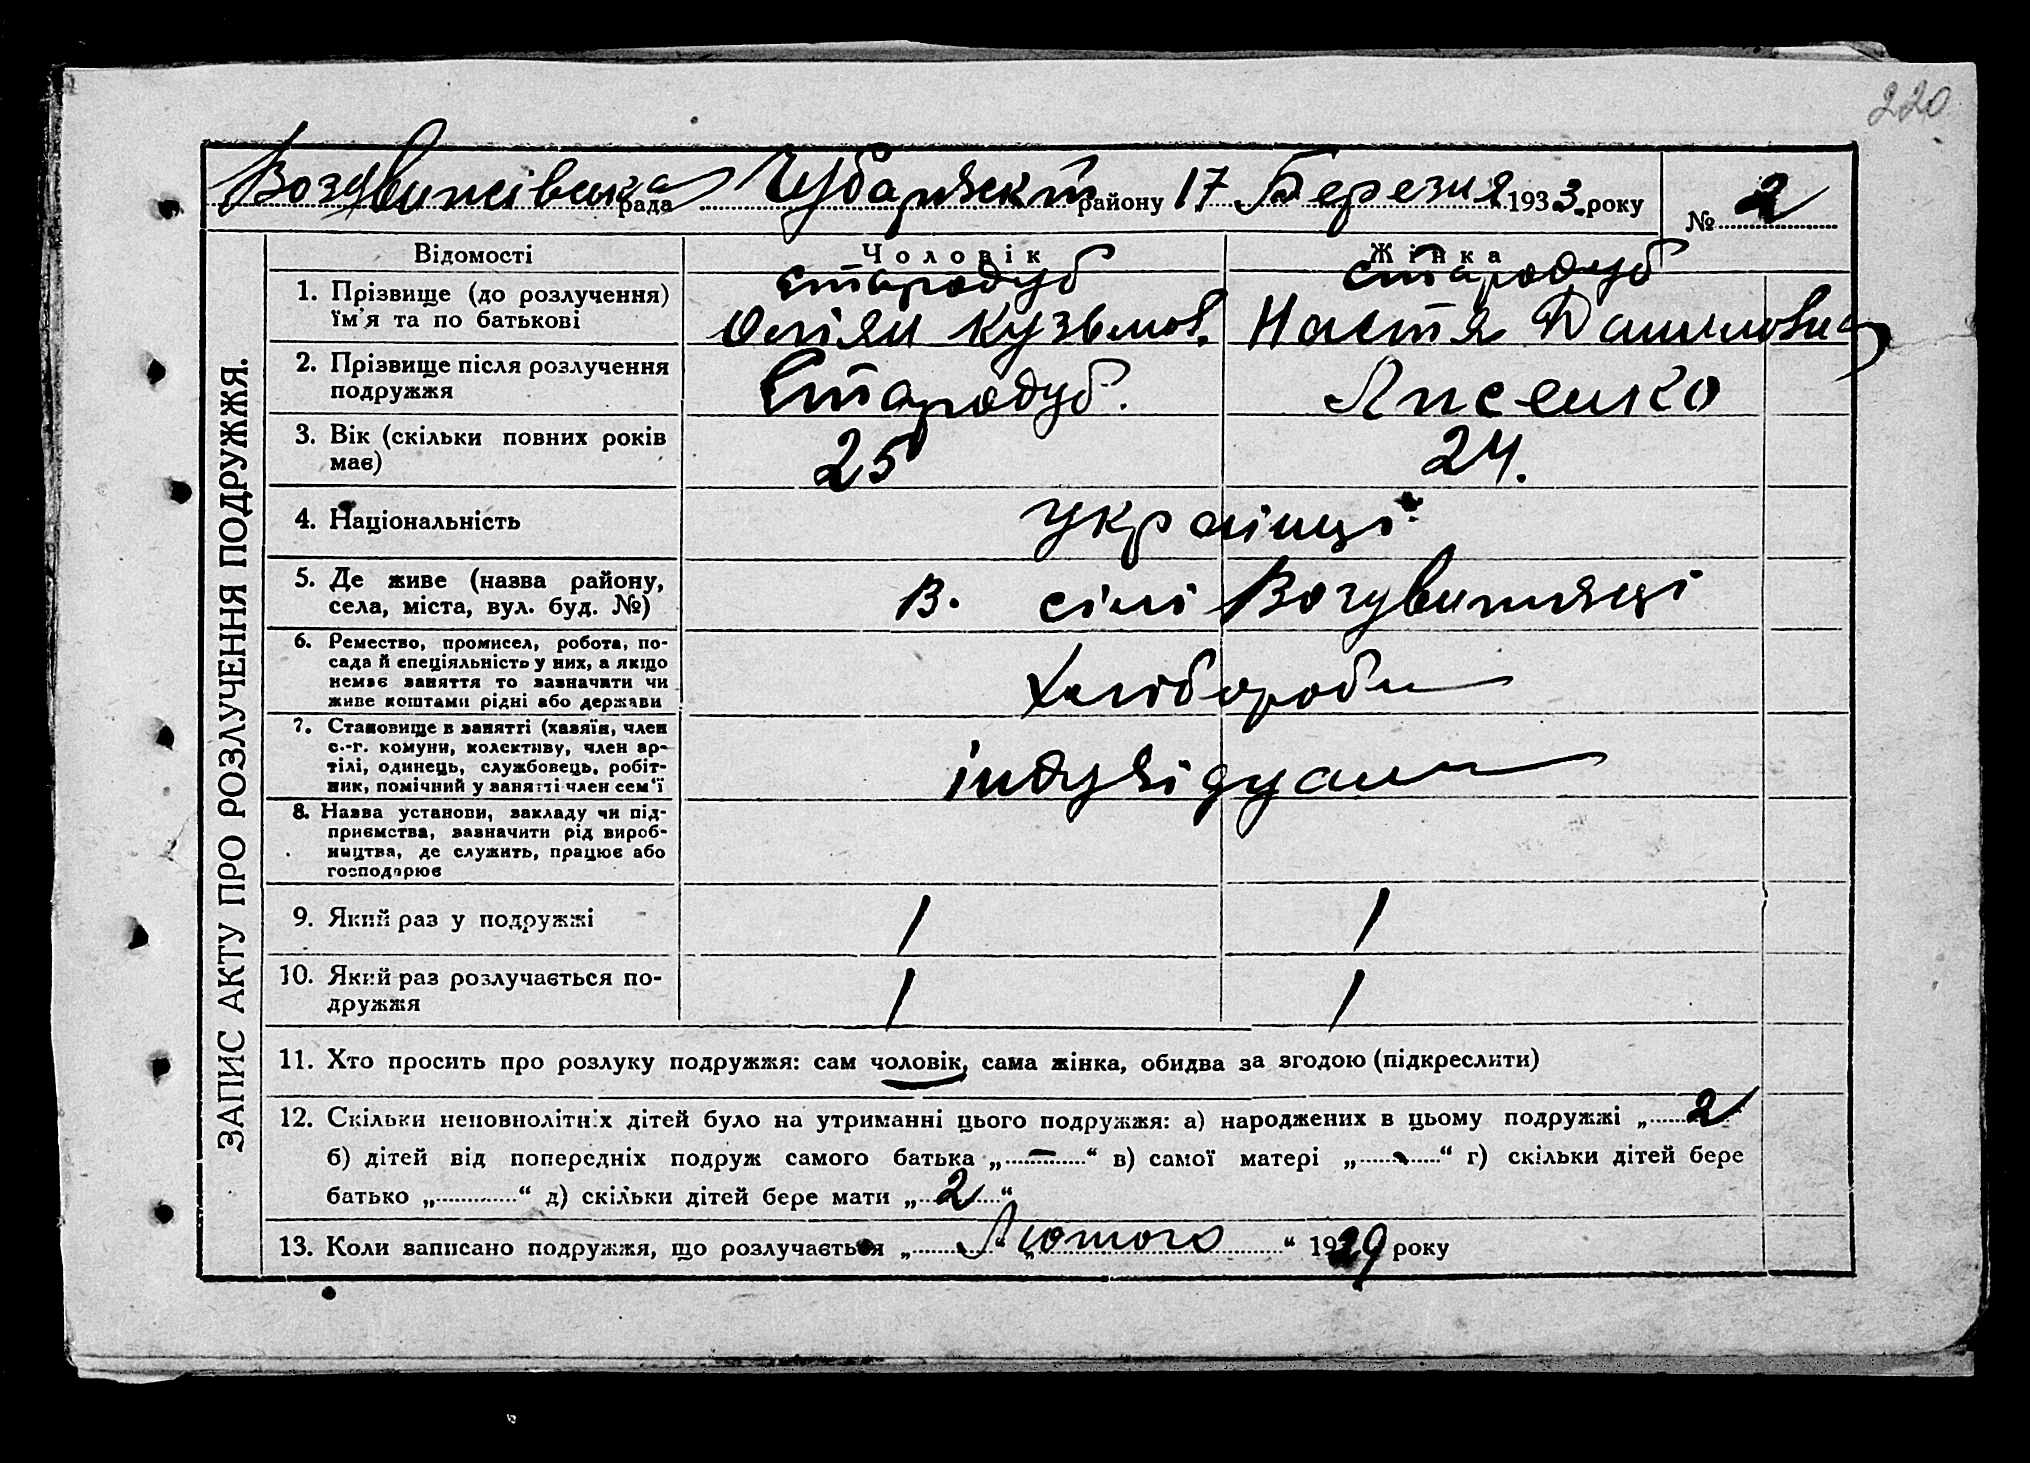 220
Воздвиживська рада Чубарівськ району 17 Березня 1933. року № 2
ЗАПИС АКТУ ПРО РОЗЛУЧЕННЯ ПОДРУЖЖЯ.
Відомості Чоловік Жінка
1. Прізвище (до розлучення) Стародуб Стародуб
їм'я та по батькові Юліян Кузьмов. Настя Даниловна
2. Прізвище після розлучення
подружжя Стародуб. Лисенко
3. Вік (скільки повних років
має) 25 24.
4. Національність українці
5. Де живе (назва району,
села, міста, вул. буд. №) В. сілі
6. Ремество, промисел, робота, по-
сада й спеціяльність у них, а якщо
немає заняття то зазначити чи
живе коштами рідні або держави Хлібороби
7. Становище в занятті (хазяїн, член
с.-г. комуни, колективу, член ар-
тілі, одинець, службовець, робіт-
ник, помічний у занятті член сем'ї індувідуали
8. Назва установи, закладу чи під-
приємства, зазначити рід вироб-
ництва, де служить, працює або
господарює
9. Який раз у подружжі 1 1
10. Який раз розлучається по-
дружжя 1 1
11. Хто просить про розлуку подружжя: сам чоловік, сама жінка, обидва за згодою (підкреслити)
12. Скільки неповнолітніх дітей було на утриманні цього подружжя: а) народжених в цьому подружжі „ 2
б) дітей від попередніх подруж самого батька „ — “ в) самої матері „ - “ г) скільки дітей бере
батько „ “ д) скільки дітей бере мати „ 2 “
13. Коли записано подружжя, що розлучається „ “ „ Лютого “ 1929 року